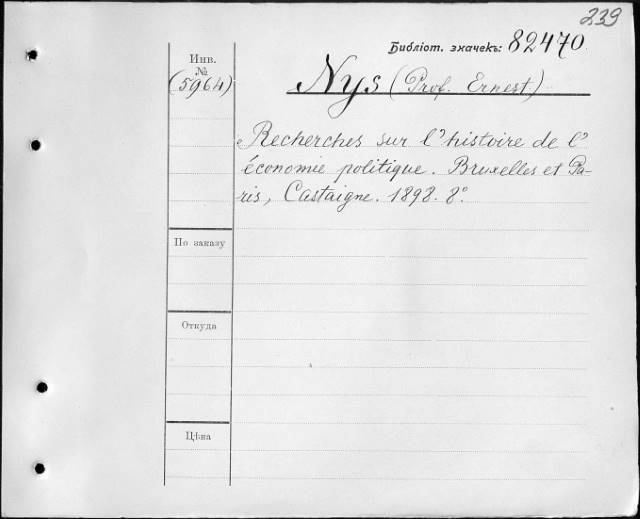 239
Библіот. значекъ: 82470
Инв.
№
(5964)
Nys (Prof. Ernest)
Recherches sur l'histoire de l'
économie politique. Bruxelles et Pa-
ris, Castaigne. 1898. 8°.
По заказу
Откуда
Цѣна